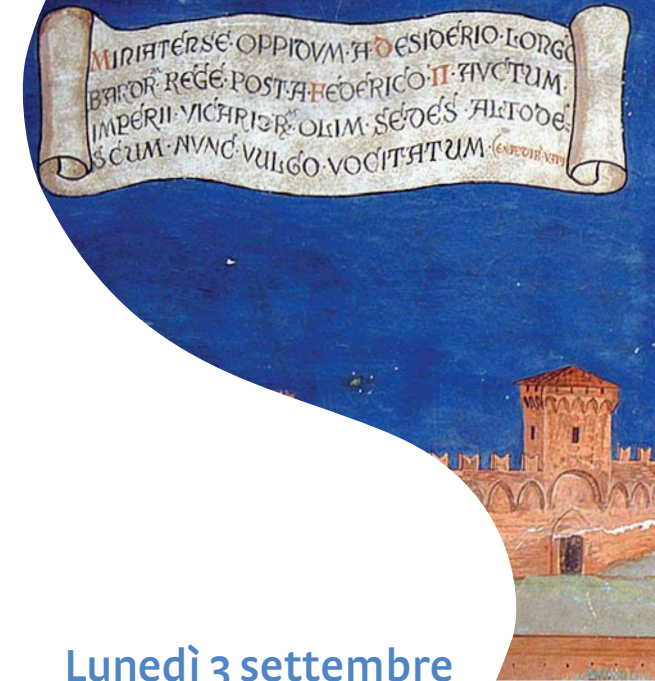 MINIATENSE·OPPIDVM·A DESIDERIO·LONGO
BARDOR REGE·POST·A·FEDERICO·II·AVCTUM·
IMPERII·VICARIOR OLIM·SEDES·ALTODE-
SCUM·NVNC·VULGO·VOCITATUM·
Lunedì 3 settembre